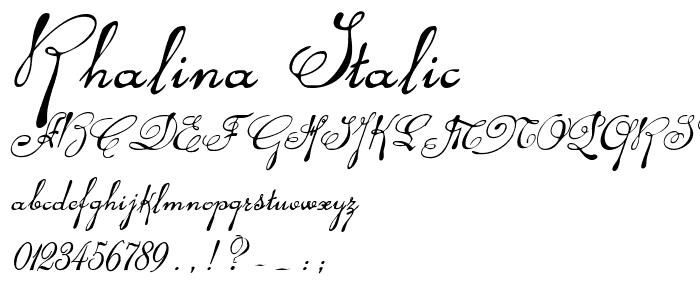 Rhalina Italic
ABCDEFGHIJKLMNOPQRS
abcdefghijklmnopqrstuvwxyz
0123456789 . , ! ? - _ : ;